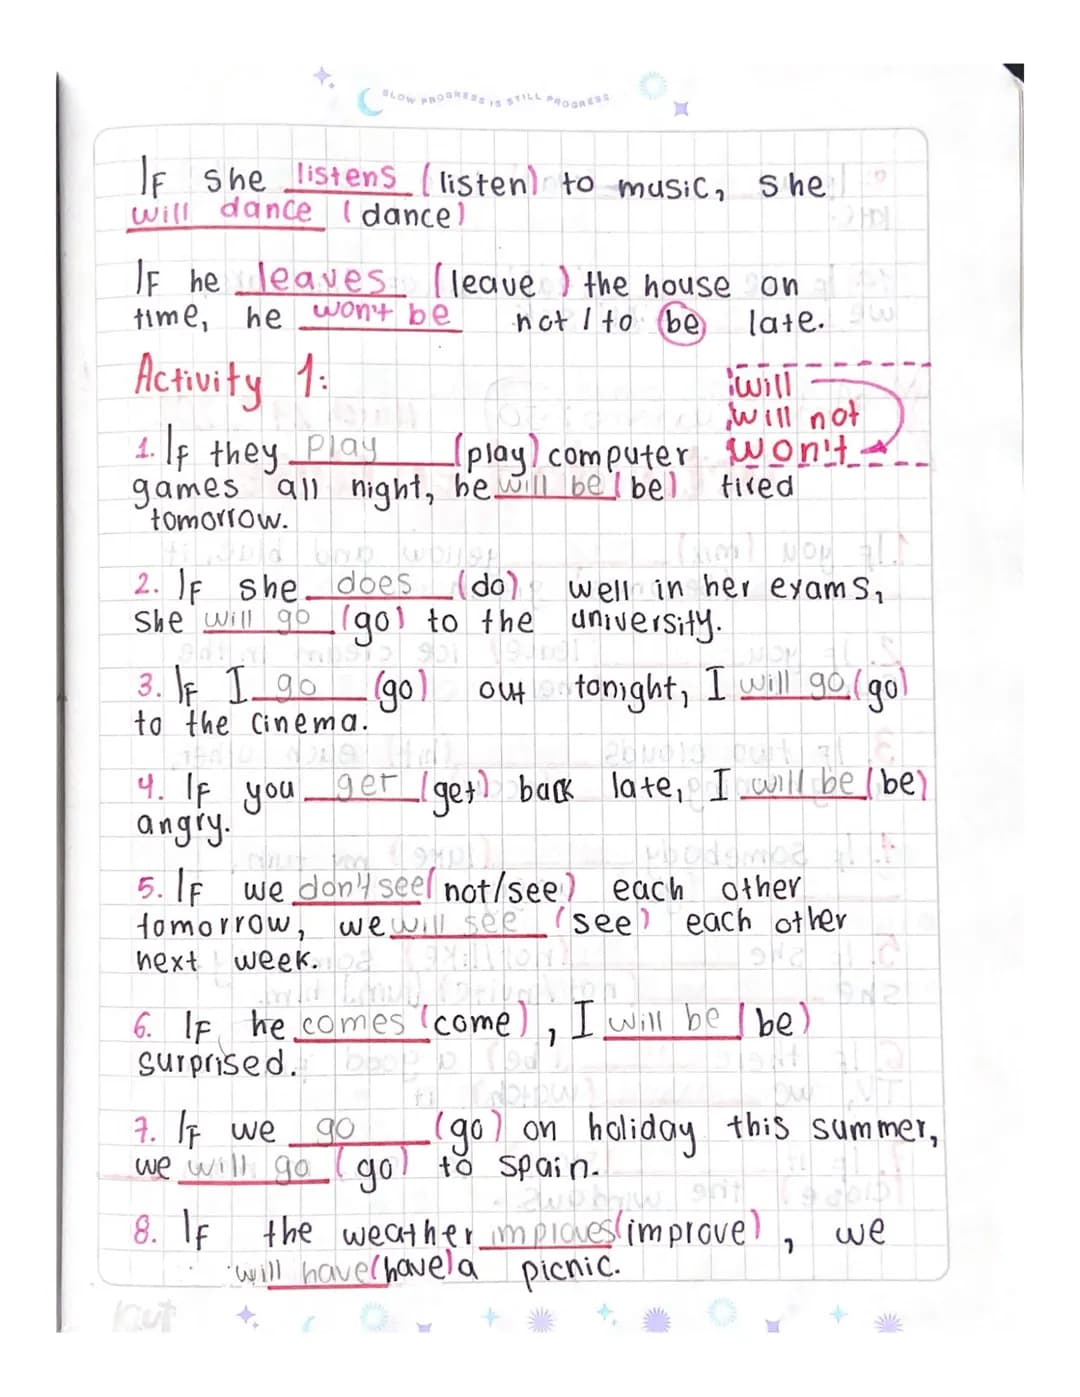 SLOW PROGRESS IS STILL PROGRESS
IF she listens (listen) to music, she
will dance (dance)
IF he leaves (leave) the house on
time, he won't be not / to be late.
Activity 1:
will
will not
won't
1. IF they play (play) computer
games all night, he will be (be) tired
tomorrow.
2. IF she does (do) well in her exams,
she will go (go) to the university.
3. IF I go (go) out tonight, I will go (go)
to the cinema.
4. IF you get (get) back late, I will be (be)
angry.
5. IF we don't see (not/see) each other
tomorrow, we will see (see) each other
next week.
6. IF he comes (come), I will be (be)
surprised.
7. IF we go (go) on holiday this summer,
we will go (go) to spain.
8. IF the weather improves (improve), we
will have (have) a picnic.